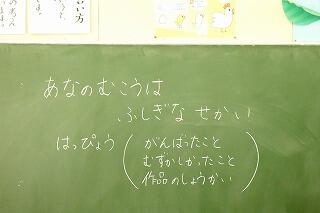 あなのむこうは
ふしぎな せかい
はっぴょう（がんばったこと
むずかしかったこと
作品のしょうかい）